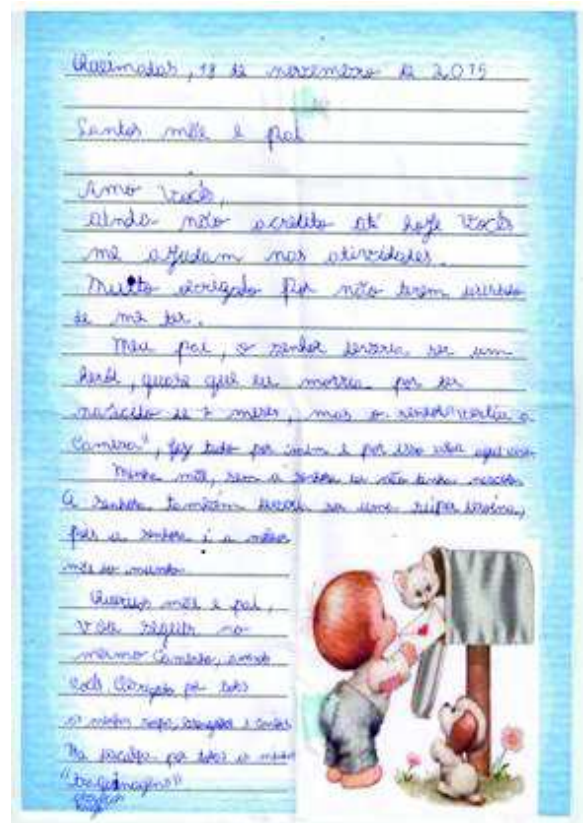 Queimadas, 18 de novembro de 2015
Santos mãe e pai
Amo vocês,
ainda não acredito até hoje vocês
me ajudam nas atividades.
Muito obrigado por não terem
de me ter.
Meu pai, o senhor deveria ser um
herói, quase que eu morria por ter
nascido de 7 meses, mas o senhor "vestiu a
Camisa", fez tudo por mim e por isso
Minha mãe, sem a senhora eu não tinha nascido
A senhora também deveria ser uma super heroína,
pois a senhora é a melhor
mãe do mundo
Queridos mãe e pai,
seguir no
mesmo caminho,
vocês, Obrigado por todos
os
por todos os